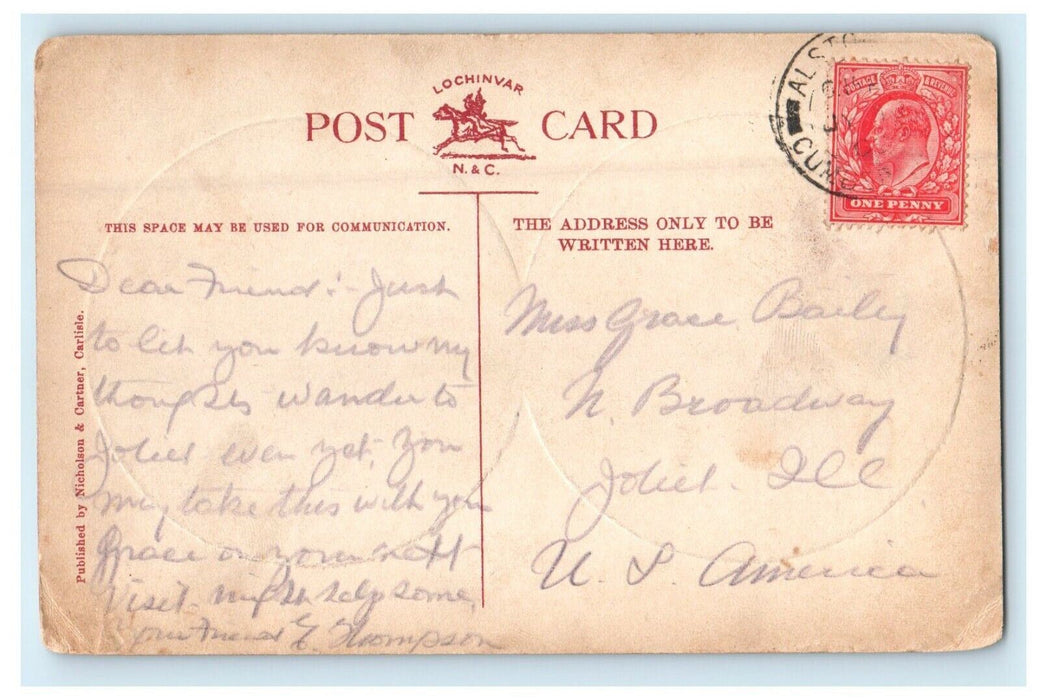 LOCHINVAR
POST CARD
N. & C.
THIS SPACE MAY BE USED FOR COMMUNICATION.
THE ADDRESS ONLY TO BE
WRITTEN HERE.
Published by Nicholson & Cartner, Carlisle.
Dear Friend:- Just
to let you know my
thoughts wander to
Joliet even yet. You
may take this with you
Grace on your next
Visit. might help some,
Your Friend E. Thompson
Miss Grace Bailey
N. Broadway
Joliet. Ill
U. S. America
ALSTO
CUMB
POSTAGE & REVENUE
ONE PENNY